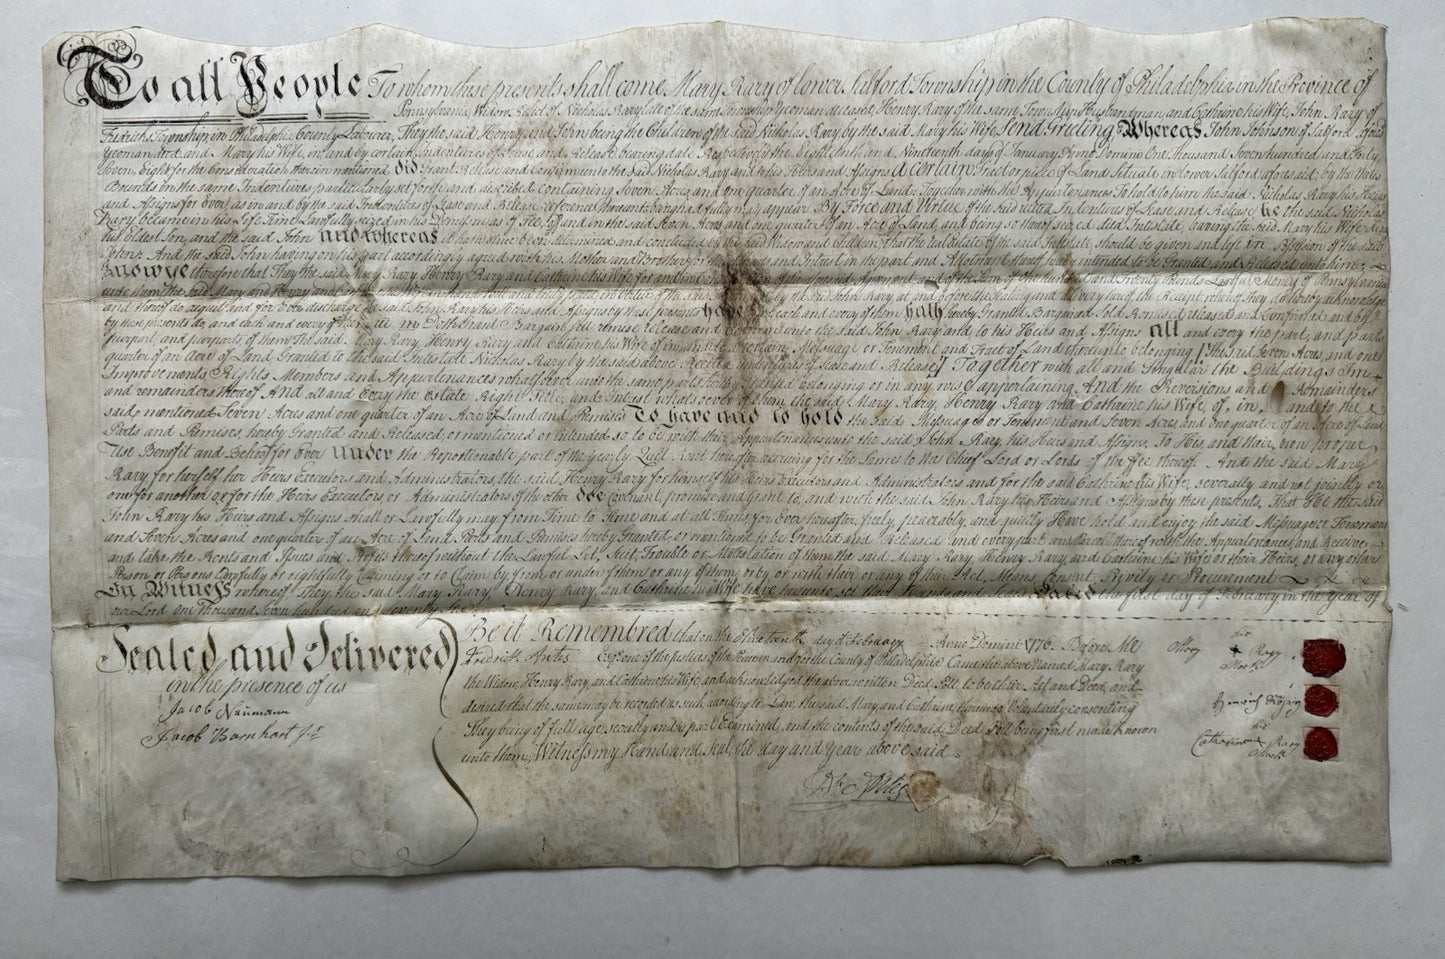 To all People To whom these presents shall come Mary Rary of Lower Salford Township in the County of Philadelphia in the Province of
Pennsylvania Widow Relict of Nicholas Rary late of the same Township Yeoman deceased Henry Rary of the same Township Husbandman, and Catharine his Wife, John Rary of
Township in Philadelphia County Labourer, They the said Henry and John being the Children of the said Nicholas Rary by the said Mary his Wife Send Greeting Whereas John Johnson of Salford afores
Yeoman and Mary his Wife, in and by certain Indentures of Lease and Release bearing date Respectively the Eighteenth and Nineteenth days of January Anno Domino One Thousand Seven hundred and Forty
Seven, Eight for the Consideration therein mentioned did Grant Release and Confirm unto the Said Nicholas Rary and to his Heirs and Assigns a certain Tract or piece of Land Situate in Lower Salford aforesaid, by the Metes
Bounds in the same Indentures particularly set forth and described containing Seven Acres and one quarter of an Acre of Land: Together with the Appurtenances To hold to him the said Nicholas Rary his Heirs
and Assigns for Ever as in and by the said Indentures of Lease and Release reference thereunto being had fully may appear By Force and Virtue of the said recited Indentures of Lease and Release, he the said Nicholas
Rary became in his Life Time Lawfully seized in his Demesne as of Fee, of and in the said Seven Acres and one quarter of an Acre of Land, and being so thereof seized died Intestate, leaving the said Mary his Wife
his Eldest Son, and the said John and whereas it hath since been determined and concluded by the said Widow and Children, that the real Estate of the said Intestate should be given and left in Possession of the said
John: And the said John having on his part accordingly agreed with his Mother and Brother for their and Intrest in the part and Allotment thereof here intended to be Granted and Released unto him;
Know ye therefore that They the said Mary Rary Henry Rary and Catharine his Wife for and in the said Agreement and of the Sum of One hundred and Twenty Pounds Lawful Money of Pennsylvania
unto them the said Mary and Henry and truly paid in by the said John Rary, at and before the Sealing and Delivery hereof the Receipt whereof they do hereby acknowledge
and thereof do acquit and for Ever discharge the said John Rary his Heirs and Assigns by these presents have and each and every of them hath hereby Granted Bargained Sold Remised released and Confirmed and by
by these presents do, and each and every of them Doth Grant Bargain sell remise release and unto the said John Rary and to his Heirs and Assigns all and every the part, and parts
purpart, and purparts of them the said Mary Rary, Henry Rary and Catharine his Wife of in and to a certain Messuage or Tenement and Tract of Land thereunto belonging (the said Seven Acres and one
quarter of an Acre of Land Granted to the said Intestate Nicholas Rary by the said above Recited Indentures of Lease and Release) Together with all and Singular the Buildings Im=
Improvements Rights Members and Appurtenances whatsoever unto the same parts hereby Granted belonging or in any wise appertaining And the Reversions and Remainders
and remainders thereof And all and Every the Estate Right Title, and Intrest whatsoever of them the said Mary Rary, Henry Rary and Catharine his Wife, of, in, and to the
said mentioned Seven Acres and one quarter of an Acre of Land and Premises To have and to hold the said Messuage or Tenement and Seven Acres and one quarter of an Acre of Land
Parts and Premises, hereby Granted and Released, or mentioned or intended so to be with their Appurtenances unto the said John Rary, his Heirs and Assigns, To His and their, own proper
Use Benefit and Behoof for Ever Under the Proportionable part of the yearly Quit Rent thereof accruing for the Same to the Chief Lord or Lords of the Fee thereof. And the said Mary
Rary for herself her Heirs Executors and Administrators the said Henry Rary for himself his Heirs Executors and Administrators and for the said Catharine his Wife, severally and not jointly or
one for another or for the Heirs Executors or Administrators of the other doe Covenant, promise and Grant to, and with the said John Rary his Heirs and Assigns by these presents, That He the said
John Rary his Heirs and Assigns shall or Lawfully may from Time to Time and at all Times for Ever hereafter, freely, peaceably, and quietly Have hold and enjoy the said Messuage or Tenement
and Seven Acres and one quarter of an Acre of Land Parts and Premises hereby Granted or mentioned to be Granted and Released and every part and Parcel thereof with the Appurtenances and Receive
and take the Rents and Issues and Profits thereof without the Lawful Let, Suit Trouble or Molestation of them the said Mary Rary, Henry Rary, and Catharine his Wife, or their Heirs, or any other
Person or Persons Lawfully or rightfully Claiming or to Claim by, from, or under of them or any of them, or by or with their or any of their Act, Means, Consent, Privity or Procurement
In Witness whereof They the said Mary Rary Henry Rary, and Catharine his Wife have hereunto set their Hands and Seals Dated the first day of February in the Year of
our Lord One Thousand Seven hundred and seventy
Sealed and Delivered
in the presence of us
Jacob Naumann
Jacob Barnhart Jr
Be it Remembred that on the day of February Anno Domini 1776. Before Me
Fredrick Antes Esqr. one of the Justices of the Peace in and for the County of Philadelphia Came the above Named Mary Rary
the Widow, Henry Rary, and Catharine his Wife and acknowledged the above written Deed Poll to be their Act and Deed, and
desired that the same may be recorded as such, according to Law, the said Mary and Catharine hereunto Voluntarily consenting
They being of full age, secretly and apart Examined, and the contents of the said Deed Poll being first made known
unto them; Witness my Hand and Seal, the day and Year above said
Fk. Antes
her
Mary + Rary
Mark
her
Catharine Rary
Mark